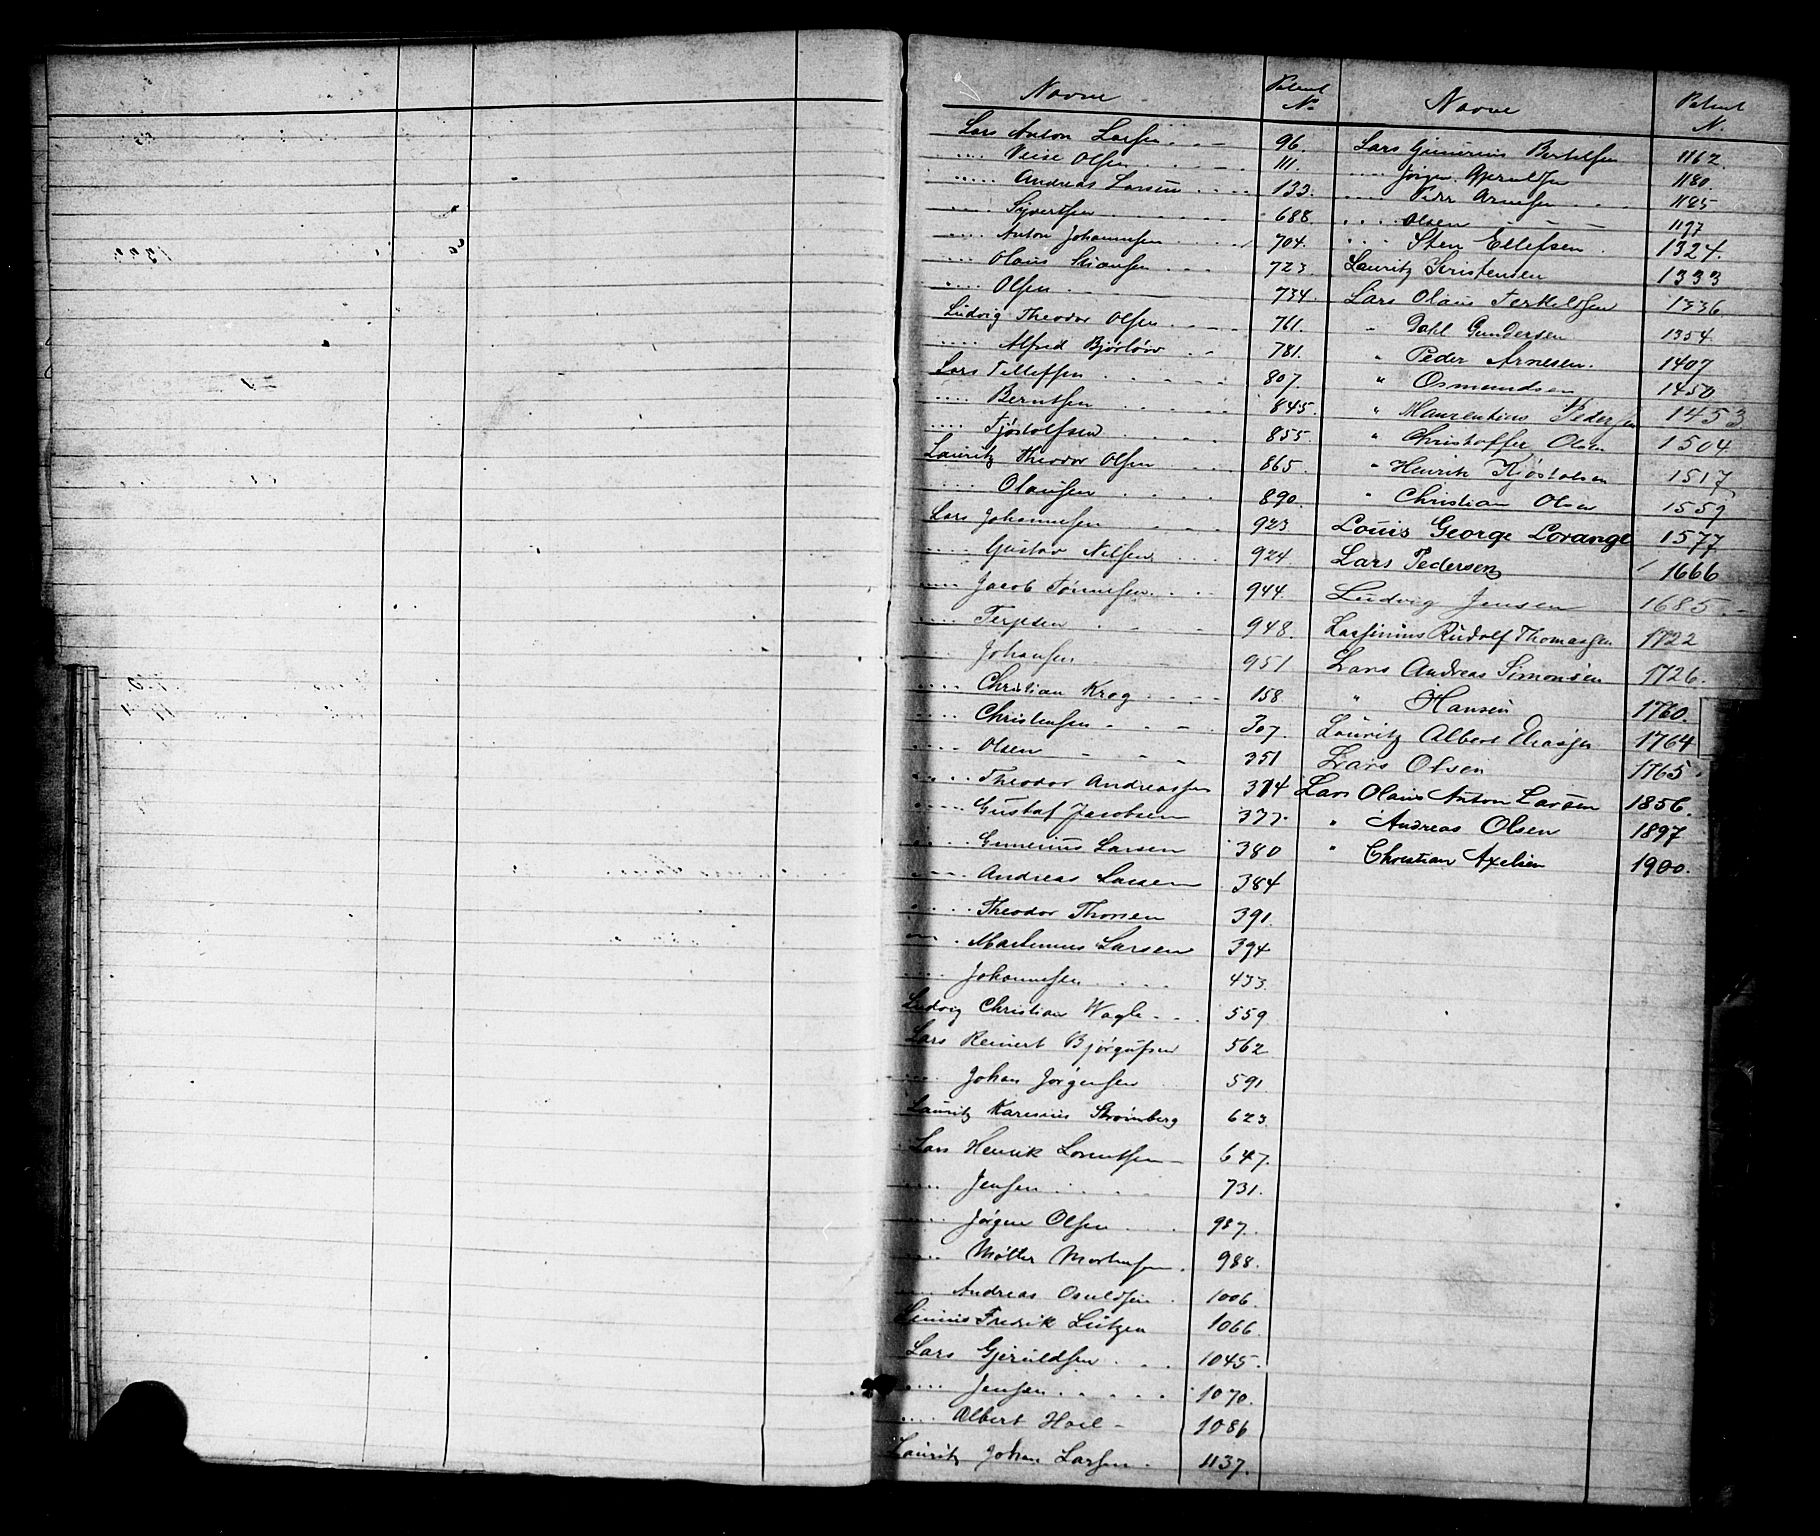 Navne Patent No Navne Patent N.
Lars Anton Larsen 96.
.... Olsen 111.
.... Andreas Larsen 133.
.... Syvertsen 688
.... Anton Johannesen 704.
.... Olaus 723
.... Olsen 734.
Ludvig Theodor Olsen 761.
.... Alfred 781.
Lars Tellefsen 807
.... Berntsen 845.
.... Tjøstolfsen 855
Lauritz Theodor Olsen 865.
.... Olausen 890.
Lars Johannesen 923
.... Gustav Nilsen 924.
.... Jacob Tønnesen 944.
.... Terjesen 948.
.... Johansen 951
.... Christian Krog 158
.... Christensen 307.
.... Olsen 351
.... Theodor Andreassen 374
.... Gustaf Jacobsen 377.
.... Gunerius Larsen 380
.... Andreas Larsen 384
.... Theodor Thorsen 391.
.... Martinius Larsen 394
.... Johannesen 433.
Ludvig Christian Wagle 559
Lars Reinert 562
.... Johan Jørgensen 591
Lauritz Karenius Strømberg 623
Lars Henrik Lorentsen 647.
.... Jensen 731.
.... Jørgen Olsen 987.
.... Møller Mortensen 988.
.... Andreas Osuldsen 1006.
Linius Fredrik Lützen 1066.
Lars Gjeruldsen 1045.
.... Jensen 1070.
.... Albert 1086
Lauritz Johan Larsen 1137.
Lars Gunerius Bertelsen 1162
.... Jørgen Gjeruldsen 1180.
.... Peder Arnesen 1185
.... Olsen 1197
.... Sten Ellefsen 1324.
Lauritz Kristensen 1333
Lars Olaus Terkeldsen 1336
" Dahl Gundersen 1354.
" Peder Arnesen. 1407
" Osmundsen 1450
" Maurentius Pedersen 1453
" Christoffer Olsen 1504
" Henrik Kjøstolsen 1517
" Christian Olsen 1559
Louis George Lorange 1577
Lars Pedersen 1666
Ludvig Jensen 1685.
Lassinius Rudolf Thomassen 1722
Lars Andreas Simonsen 1726.
" Hansen 1760.
Lauritz Albert Eliasen 1764
Lars Olsen 1765
Lars Olaus Anton Larsen 1856.
" Andreas Olsen 1897
" Christian Axelsen 1900.